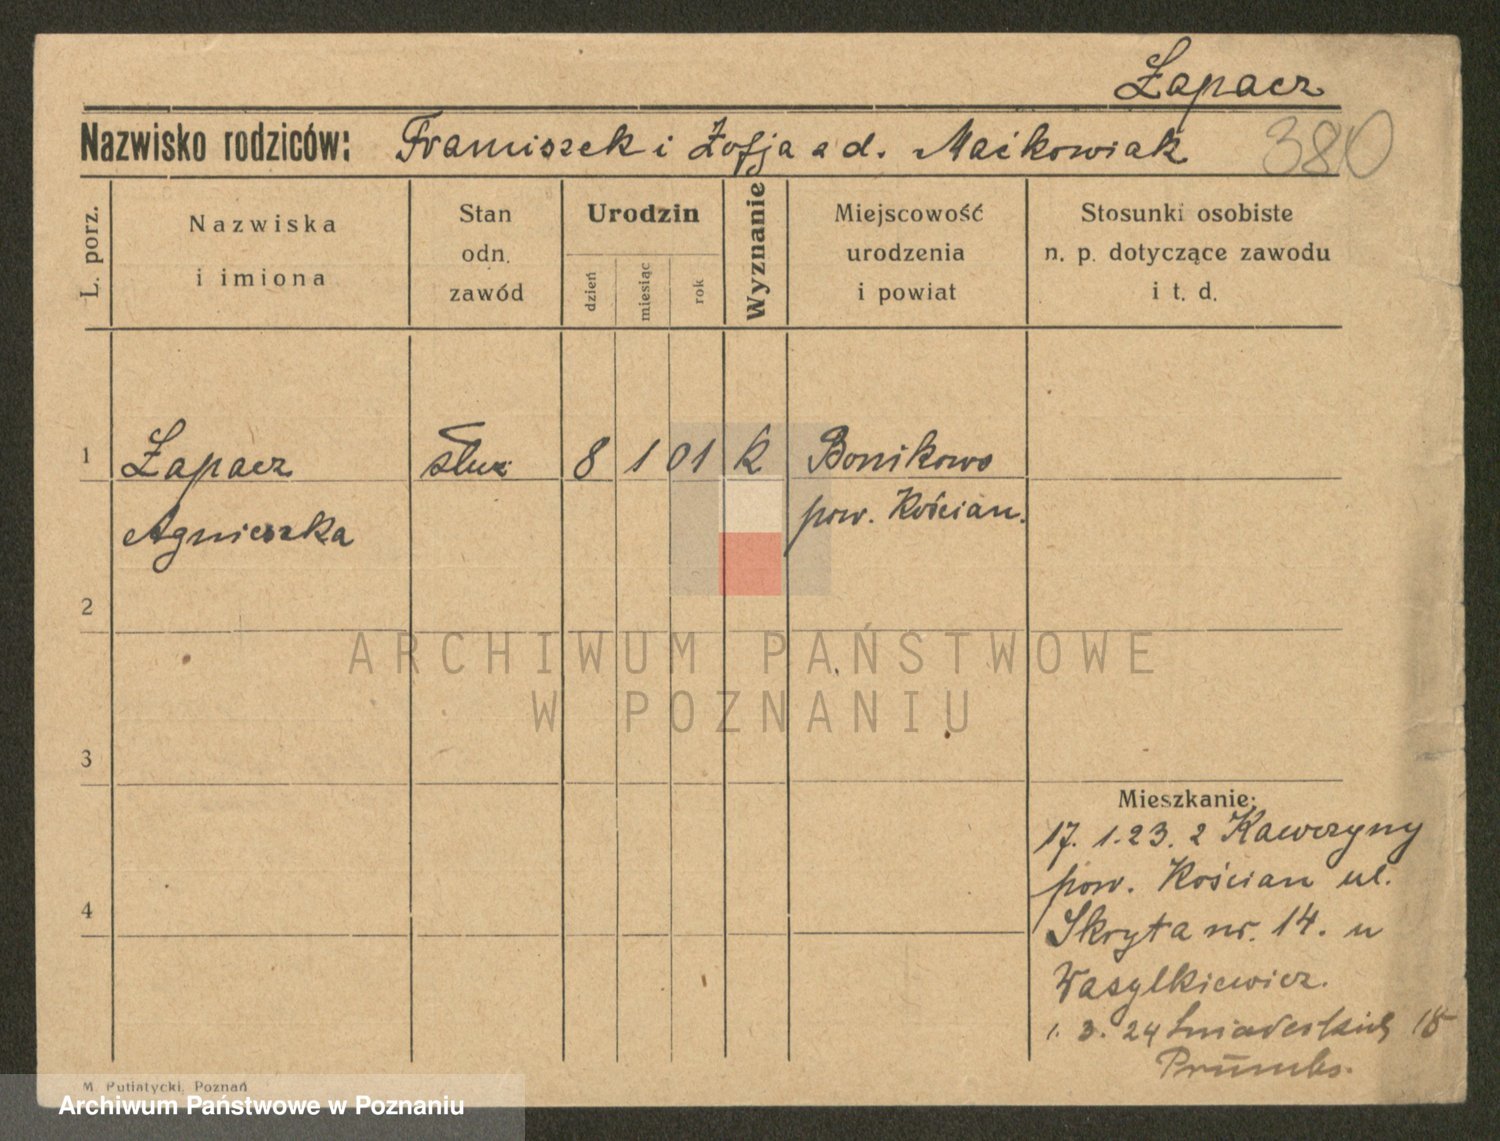 Łapacz
Nazwisko rodziców: Franciszek i Zofja a d. Maćkowiak
380
L. porz.
Nazwiska
i imiona
Stan
odn.
zawód
Urodzin
dzień
miesiąc
rok
Wyznanie
Miejscowość
urodzenia
i powiat
Stosunki osobiste
n. p. dotyczące zawodu
i t. d.
1 Łapacz służ 8 1 01 k Bonikowo
Agnieszka pow. Kościan.
2
ARCHIWUM PAŃSTWOWE
W POZNANIU
3
Mieszkanie:
17. 1. 23. z Kawczyny
pow. Kościan ul.
4
Skryta nr. 14. u
Wasylkiewicz.
1. 3. 24 Śniadeckich 15
M. Putiatycki, Poznań
Archiwum Państwowe w Poznaniu